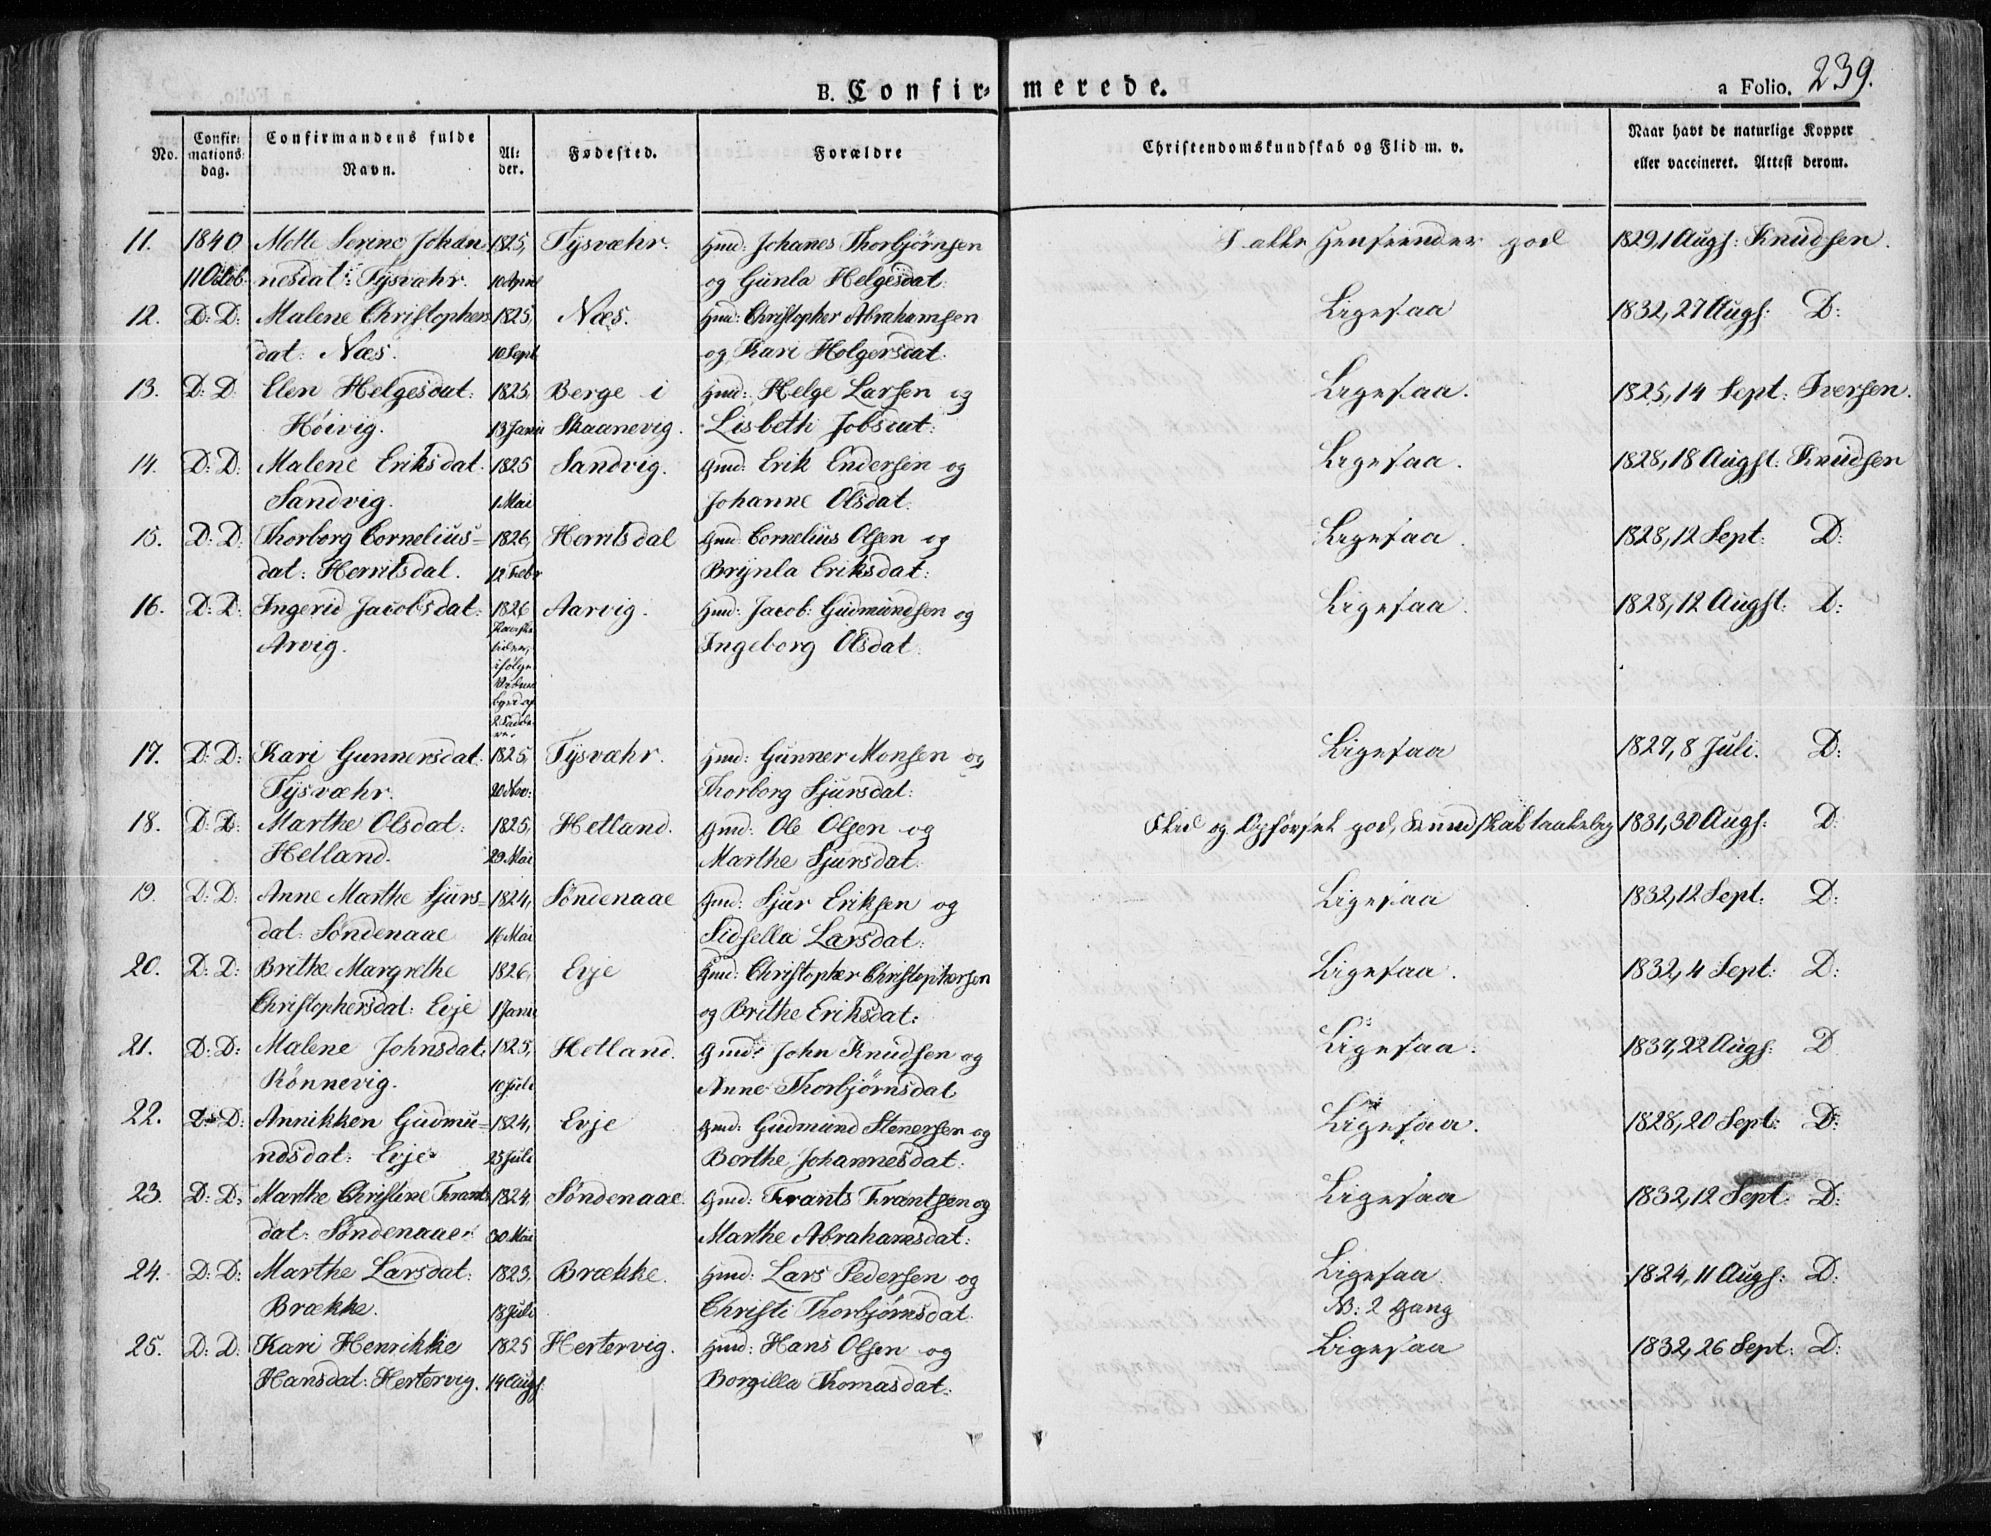 B. Confir- merede. a Folio. 239.
No. Confirmations dag. Confirmandens fulde Navn. Alder. Fødested. Forældre Christendomskundskab og Flid m. v. Naar havt de naturlige Kopper eller vaccineret. Attest derom.
11. 1840 Mette Serine Johan- 1825, Tysvæhr. Gmd: Johanes Thorbjørnsen I alle Henseender god 1829, 1 Augs: Knudsen.
11 Octob. nesdat: Tysvæhr. 10 April og Gunla Helgesdat:
12. D: D: Malene Christophers- 1825, Næs. Gmd: Christopher Abrahamsen Ligesaa 1832, 27 Augs: D:
dat: Næs. 10 Sept og Kari Holgersdat:
13. D: D. Elen Helgesdat: 1825, Berge i Gmd: Helge Larsen og Ligesaa. 1825, 14 Sept: Iversen.
Høivig. 13 Janu Skaanevig. Lisbeth Jobsdat:
14. D: D: Malene Eriksdat: 1825 Sandvig. Gmd: Erik Endersen og Ligesaa. 1828, 18 Augst: Knudsen
Sandvig. 1 Mai Johanne Olsdat:
15. D: D: Thorborg Cornelius- 1826, Herritsdal Gmd Cornelius Olsen og Ligesaa. 1828, 12 Sept: D:
dat: Herritsdal. 12 Febr Brynla Eriksdat:
16. D: D: Ingerid Jacobsdat: 1826 Aarvig. Gmd: Jacob Gudmundsen og Ligesaa. 1828, 12 Augst: D:
Arvig. Ingeborg Olsdat:
17. D: D: Kari Gunnersdat: 1825, Tysvæhr. Gmd: Gunner Monsen og Ligesaa 1827, 8 Juli. D:
Tysvæhr. 20 Nov: Thorborg Sjursdat:
18. D: D: Marthe Olsdat: 1825, Hetland. Gmd: Ole Olsen og Flid og Opførsel god, Kundskab taalelig 1831, 30 Augs: D:
Helland. 29 Mai Marthe Sjursdat:
19. D: D: Anne Marthe Sjurs- 1824, Søndenaae Gmd: Sjur Eriksen og Ligesaa 1832, 12 Sept: D:
dat: Søndenaae 16 Mai Sidsella Larsdat:
20. D: D: Brithe Margrethe 1826, Evje Gmd: Christopher Christophersen Ligesaa. 1832, 4 Sept: D:
Christophersdat: Evje 1 Janu og Brithe Eriksdat:
21. D: D: Malene Johnsdat: 1825, Hetland. Gmd: John Knudsen og Ligesaa. 1837, 22 Augs: D
Rønnevig. 10 Juli Anne Thorbjørnsdat
22. D: D: Annikken Gudmu- 1824, Evje Gmd: Gudmund Stenersen og Ligesaa. 1828, 20 Sept: D:
ndsdat: Evje 25 Juli Borthe Johannesdat:
23. D: D. Marthe Christine Frants 1824. Søndenaae. Gmd: Frants Frantsen og Ligesaa 1832, 12 Sept: D:
dat: Søndenaae 30 Mai Marthe Abrahamsdat:
24. D: D: Marthe Larsdat: 1823. Brække. Gmd: Lars Pedersen og Ligesaa 1824, 11 Augs: D:
Brække. 18 Juli Christi Thorbjørnsdat: NB: 2 Gang
25. D: D. Kari Henrikke 1825 Hertervig. Gmd: Hans Olsen og Ligesaa 1832, 26 Sept: D:
Hansdat: Hertervig. 14 Augs: Borgilla Thomasdat: